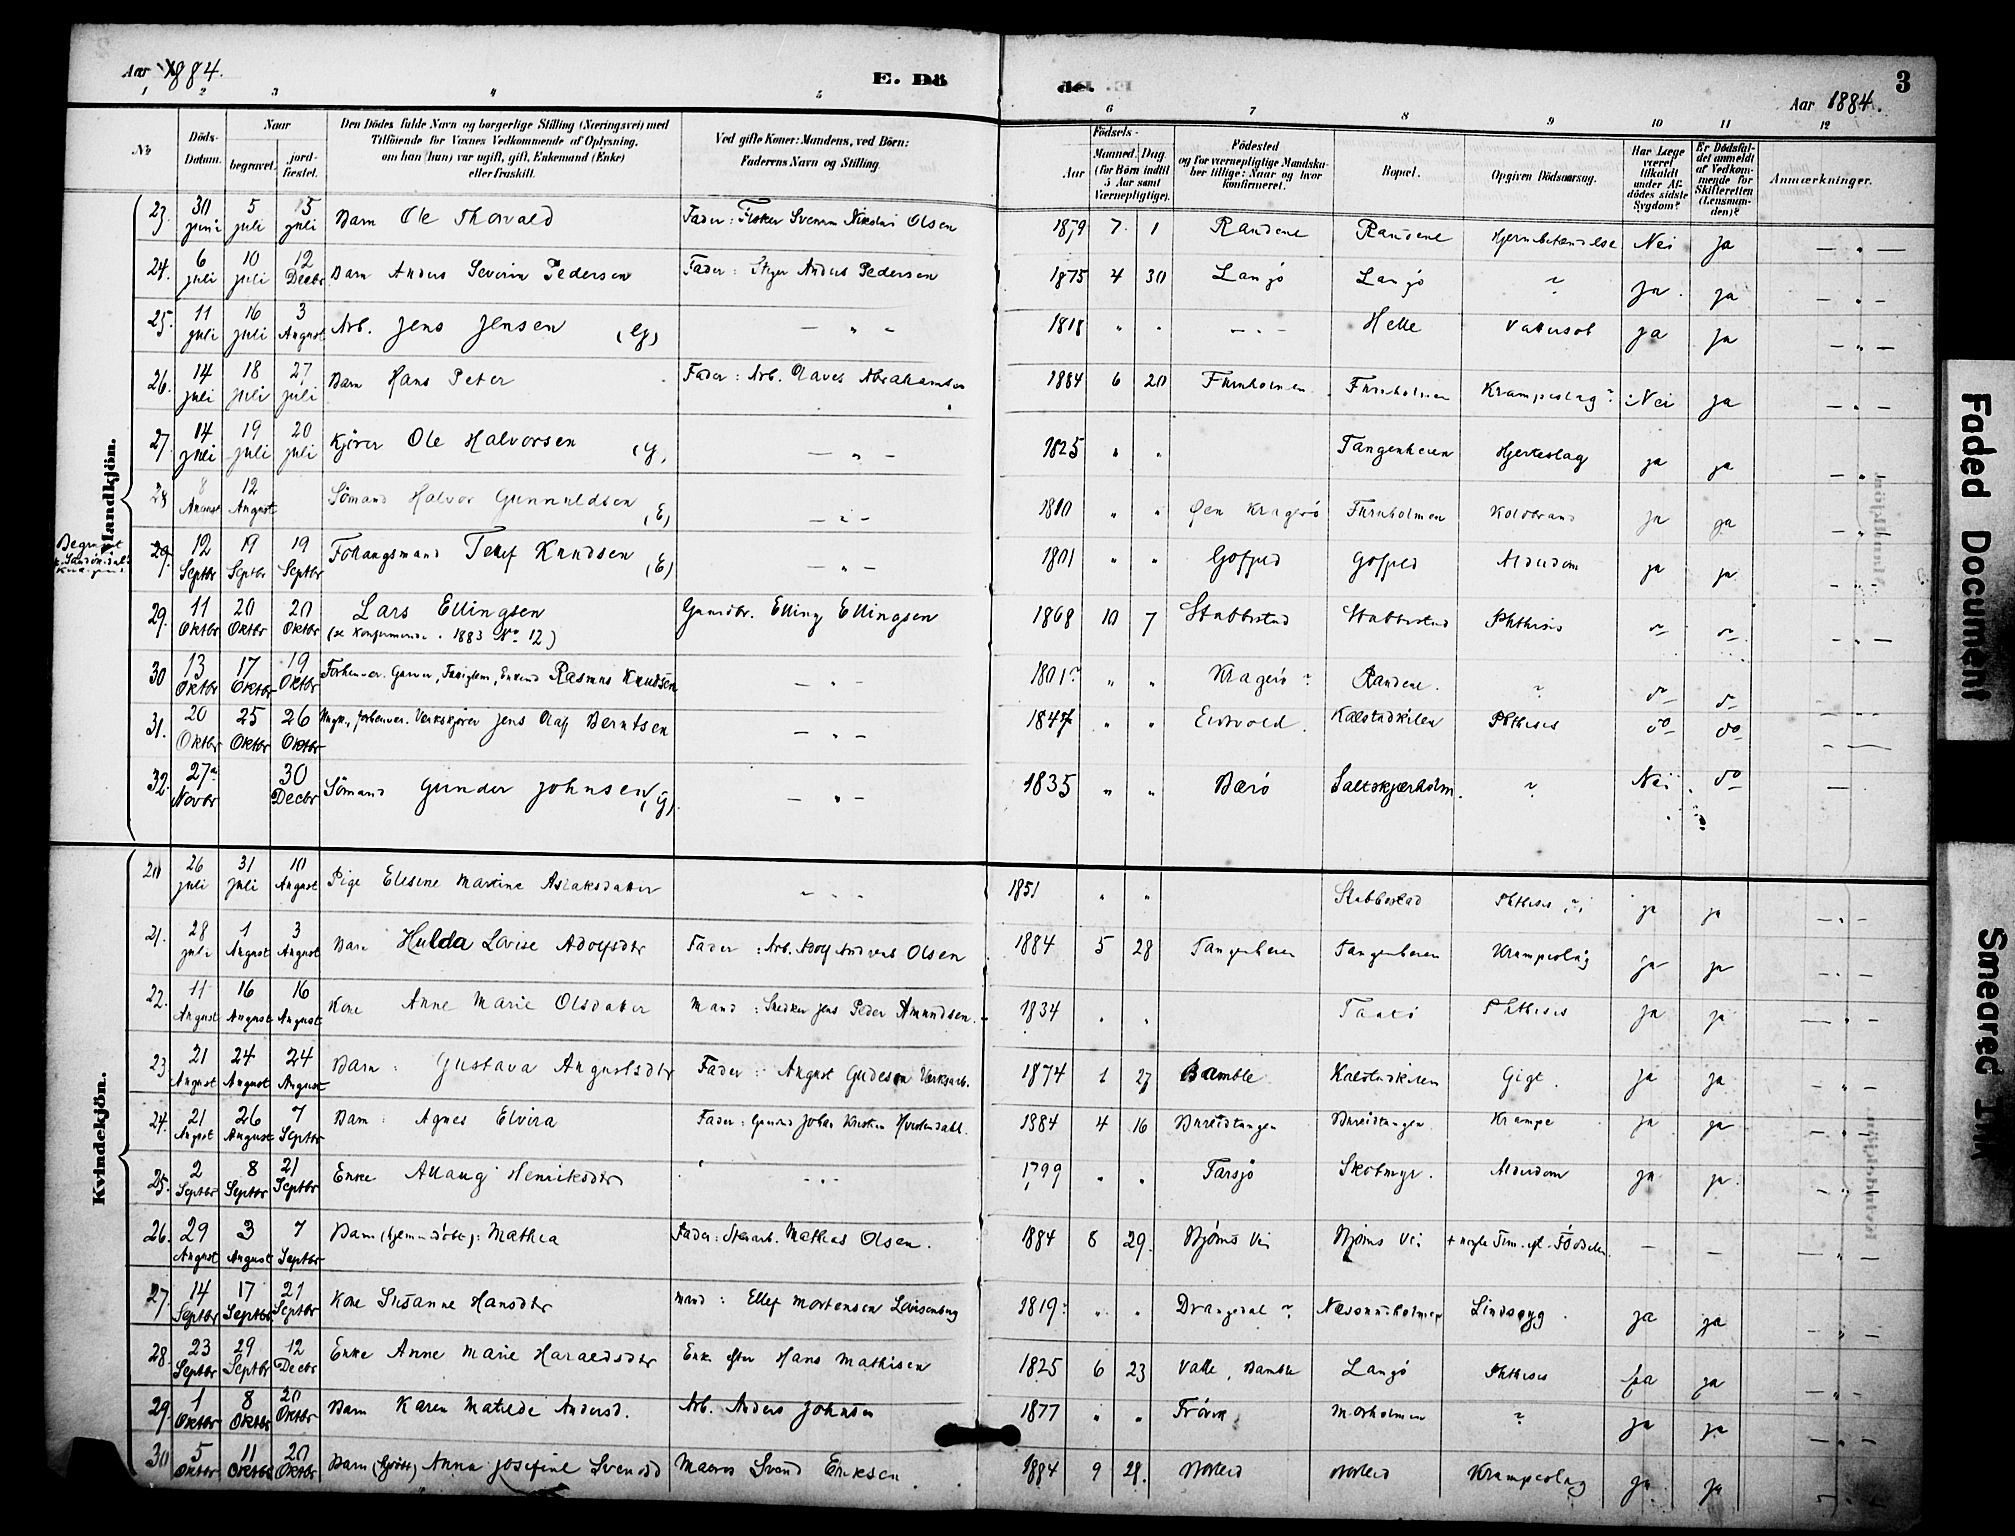 Aar 1884. E. Dö
de. 3
Aar 1884.
1 2 3 4 5 6 7 8 9 10 11 12
No
Döds-Datum.
Naar
begravet.
jord-fæstet.
Den Dödes fulde Navn og borgerlige Stilling (Næringsvei) med
Tilföiende for Voxnes Vedkommende af Oplysning,
om han (hun) var ugift, gift, Enkemand (Enke)
eller fraskilt.
Ved gifte Koner: Mandens, ved Börn:
Faderens Navn og Stilling.
Födsels-
Aar
Maaned. Dag
(for Börn indtil
5 Aar samt
Værnepligtige).
Födested
og for værnepligtige Mandska-
ber tillige: Naar og hvor
konfirmeret.
Bopæl.
Opgiven Dödsaarsag.
Har Læge
været
tilkaldt
under Af-
dödes sidste
Sygdom?
Er Dödsfal-
det anmeldt
af Vedkom-
mende for
Skifteretten
(Lensman-
den)?
Anmærkninger.
Mandkjön.
23. 30 juni 5 juli 5 juli Barn Ole Thorvald Fader: Fisker Nikolai Olsen 1879 7. 1 Randene Randene Hjernebetændelse Nei ja — „ —
24. 6 juli 10 juli 12 Decbr Barn Anders Severin Pedersen Fader: Anders Pedersen 1875 4 30 Langö Langö ? ja. ja — „ —
25. 11 juli 16 juli 3 August Arb. Jens Jensen (G) — „ — 1818 „ „ — „ — Helle Vattersot ja ja — „ —
26. 14 juli 18 juli 27 juli Barn Hans Peter Fader: Arb. Abrahamsen 1884 6 20 Furuholmen Furuholmen Krampeslag? Nei ja — „ —
27. 14 juli 19 juli 20 juli Kjører Ole Halvorsen (G) — „ — 1825 „ „ Tangenheien Hjerteslag ja ja — „ —
28 8 August 12 August Sömand Halvor Gunnuldsen (E) — „ — 1810 „ „ Öen Kragerö Furuholmen Koldbrand ja ja — „ —
Begravet
29. 12 Septbr 19 Septbr 19 Septbr Tellef Knudsen (E) — „ — 1801 „ „ Gofjeld Gofjeld Alderdom ja ja — „ —
29. 11 Oktbr 20 Oktbr 20 Oktbr Lars Ellingsen Gaardbr. Elling Ellingsen 1868 10 7 Stabbestad Stabbestad Phthisis do do — „ —
(se Konfirmerede 1883 No 12)
30 13 Oktbr 17 Oktbr 19 Oktbr Rasmus Knudsen — „ — 1801? „ „ Kragerö? Randene. ? do do
31. 20 Oktbr 25 Oktbr 26 Oktbr Ungk., forhenver. Værkskjører Jens Olaf Berntsen — „ — 1847 „ „ Eidsvold. Kalstadkilen Phthisis do do
32. 27? Novbr 30 Decbr Sömand Gunder Johnsen (G). — „ — 1835 „ „ Bærö Saltskjærholm. ? Nei do —
Kvindekjön.
20 26 juli 31 juli 10 August Pige Elesine Martine Aslaksdatter „ 1851 „ „ Stabbestad Phthisis ja ja — „ —
21. 28 juli 1 August 3 August Barn Hulda Lovise Adolfsdtr Fader: Arb. Adolf Andreas Olsen 1884 5 28 Tangenheien Tangenheien Krampeslag ja ja — „ —
22. 11 August 16 August 16 August Kone Anne Marie Olsdatter Mand: Snedker Jens Peder Amundsen. 1834 „ „ Taatö Phthisis ja ja — „ —
23 21 August 24 August 24 August Barn: Gustava Augustsdtr Fader: August Gudesen Værksarb. 1874 1 27 Bamble Kalstadkilen Gigt. ja ja — „ —
24. 21 August 26 August 7 Septbr Barn: Agnes Elvira Fader: Johan Kristian 1884 4 16 Bureidtangen Bureidtangen Krampe ja ja — „ —
25. 2 Septbr 8 Septbr 21 Septbr Enke Allaug Henriksdtr „ 1799 „ „ Farsjö Skotmyr. Alderdom ja ja — „ —
26. 29 August 3 August 7 Septbr Barn (hjemmedöbt): Mathea Fader: Mathias Olsen. 1884 8 29. Björns Vei Björns Vei + nogle Tim. ef. Födselen. — — „ —
27 14 Septbr 17 Septbr 21 Septbr Kone Susanne Hansdtr Mand: Ellef Mortensen Lovisenberg 1819? „ „ Drangedal? Næsundholmen Lindsyg. ja ja „ —
28. 23 Septbr 29 Septbr 12 Decbr Enke Anne Marie Haraldsdtr Enke efter Hans Mathisen 1825 6 23 Valle, Bamble Langö Phthisis ja ja — „ —
29. 1 Oktbr 8 Oktbr 20 Oktbr Barn Karen Matilde Andersd. Arb. Anders Johnsen 1877 „ „ Frövik Morholmen ? ja ja — „ —
30 5 Oktbr 11 Oktbr 20 Oktbr Barn Anna Josefine Svendsd Svend Eriksen 1884 9 28. Krampeslag ja ja
Faded Document
Smeared Ink